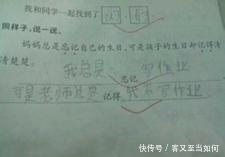 我和同学一起找到了
照样子,说一说。
妈妈总是忘记自己的生日,可是孩子的生日却记得清
清楚楚。
我总是 忘记 写作业
可是老师总是 记得 我不写作业
快传号 / 客又至当如何